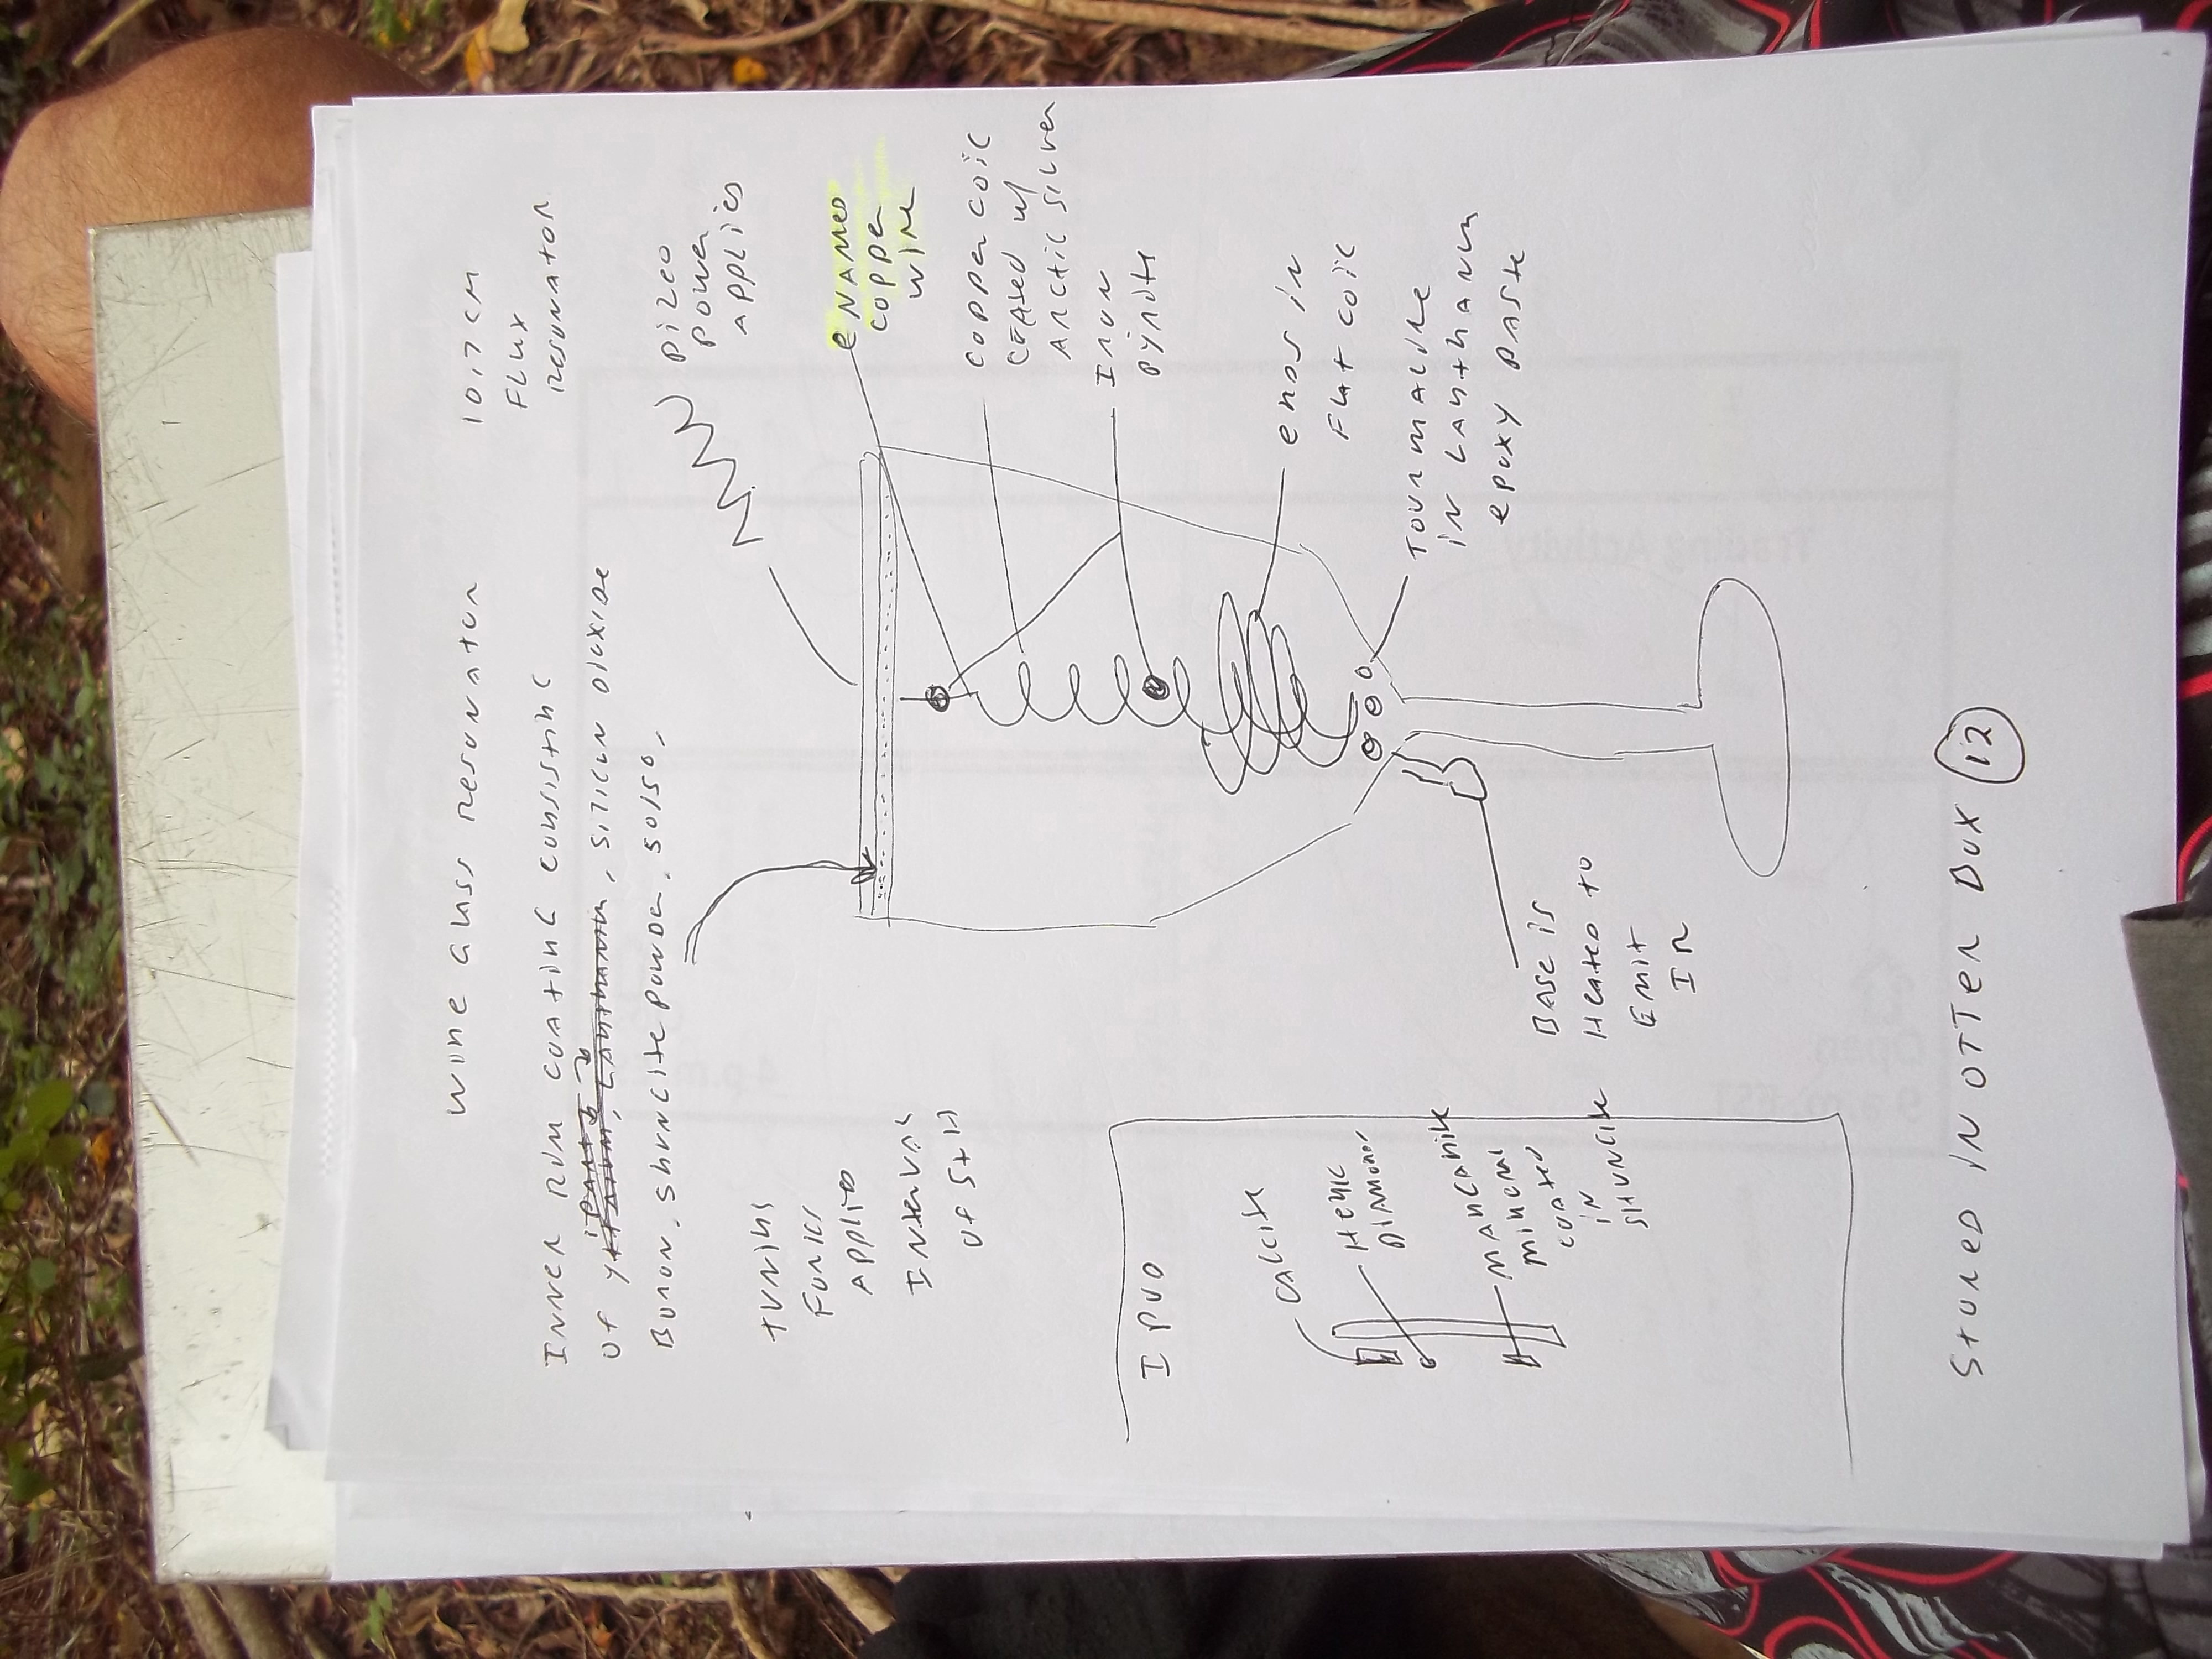 WINE GLASS RESONATOR
10.7 CM
FLUX
RESONATOR
INNER RIM COATING CONSISTING
OF , SILICON DIOXIDE
BORON, SHUNGITE POWDER, 50/50,
PIZEO
POWER
APPLIES
eNAMED
COPPER
WIRE
COPPER COIL
COATED W/
ARCTIC SILVER
IRON
PYRITE
ENDS IN
FLAT COIL
TOURMALINE
IN LANTHANUM
EPOXY PASTE
TUNING
FORKS
APPLIED
INTERVAL
OF 5TH
BASE IS
HEATED TO
EMIT
IR
I POD
CALCITE
DIAMOND
MINERAL
COATED
IN
SHUNGITE
STORED IN OTTER BOX 12
Trading Activity
Open
4 p.m.